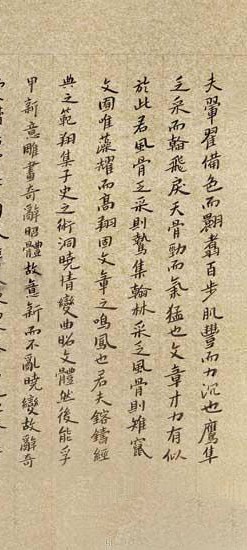 夫翬翟備色而翾翥百步肌豐而力沉也鷹隼
乏采而翰飛戾天骨勁而氣猛也文章才力有似
於此若風骨乏采則鷙集翰林采乏風骨則雉竄
文囿唯藻耀而高翔固文章之鳴鳳也若夫鎔鑄經
典之範翔集子史之術洞曉情變曲昭文體然後能孚
甲新意雕畫奇辭昭體故意新而不亂曉變故辭奇